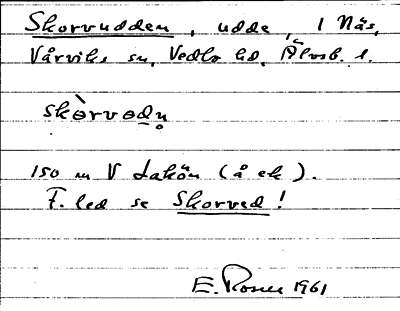 Skorvudden, udde, 1 Näs,
Vårviks sn, Vedbo hd, Älvsb. l.
skòrvədn̥
150 m V Lakön (å ek).
F. led se Skorved!
E. Rosell 1961